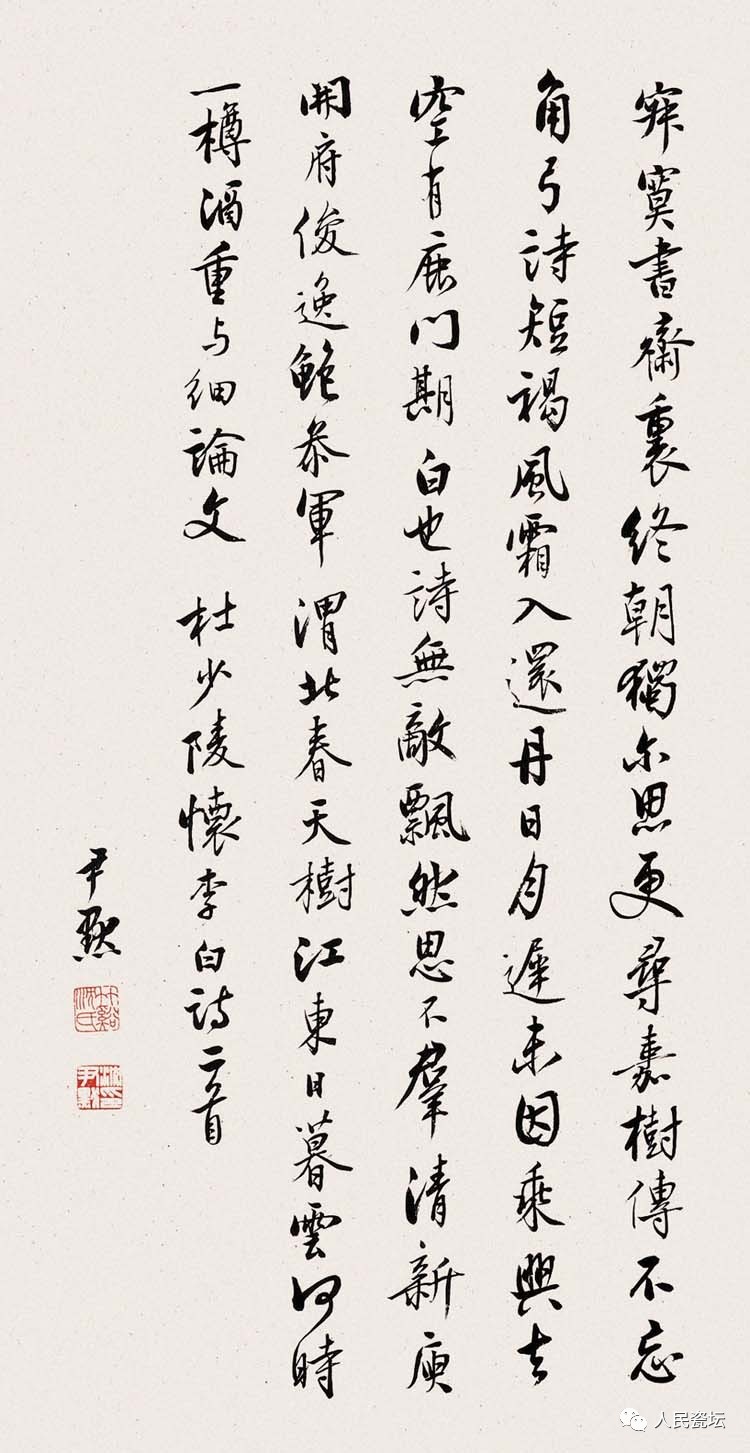 寂寞書齋裏終朝獨尔思更尋嘉樹傳不忘
角弓詩短褐風霜入還丹日月遲未因乘興去
空有鹿門期白也詩無敵飄然思不羣清新庾
開府俊逸鮑參軍渭北春天樹江東日暮雲何時
一樽酒重与細論文 杜少陵懷李白詩二首
尹默
竹谿沈氏
沈印尹默
人民瓷坛